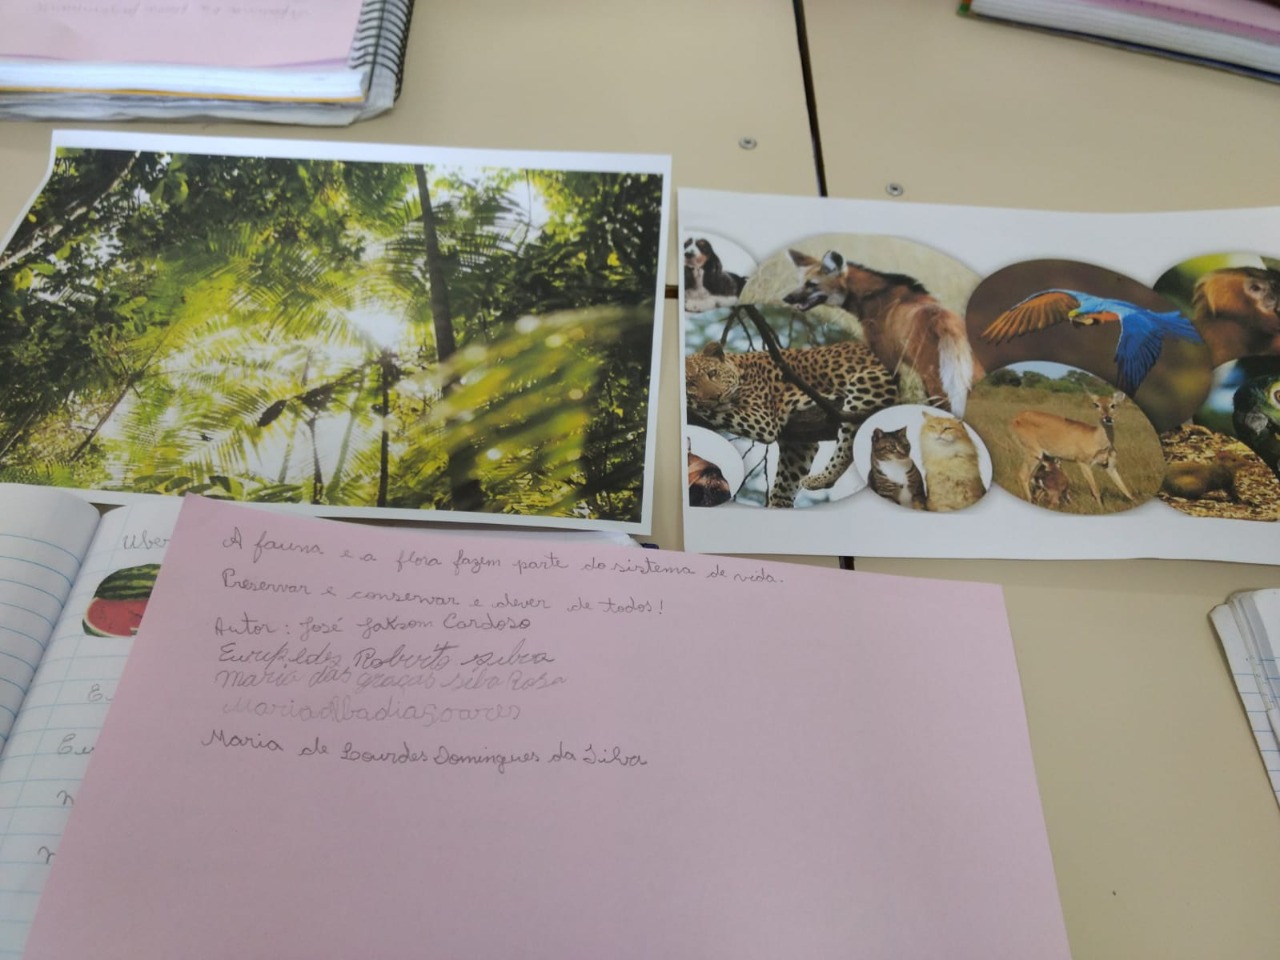 A fauna e a flora fazem parte do sistema de vida.
Preservar e conservar e dever de todos!
Autor: José Jakson Cardoso
Euripedes Roberto silva
maria das graças silva Rosa
Maria Abadia Soares
Maria de Lourdes Domingues da Silva
Uber